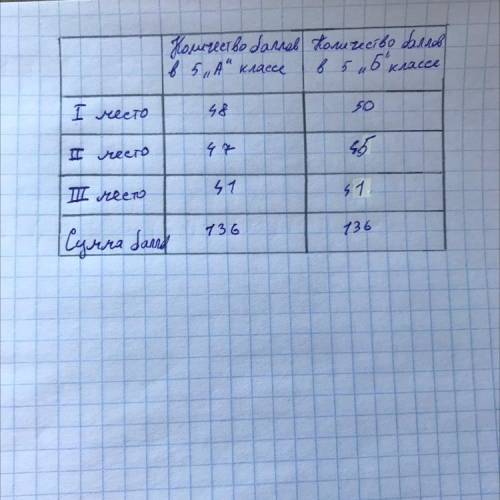 Количество баллов Количество баллов
в 5 „А“ классе в 5 „Б“ классе
I место 48 50
II место 47 45
III место 41 41
Сумма балло 136 136